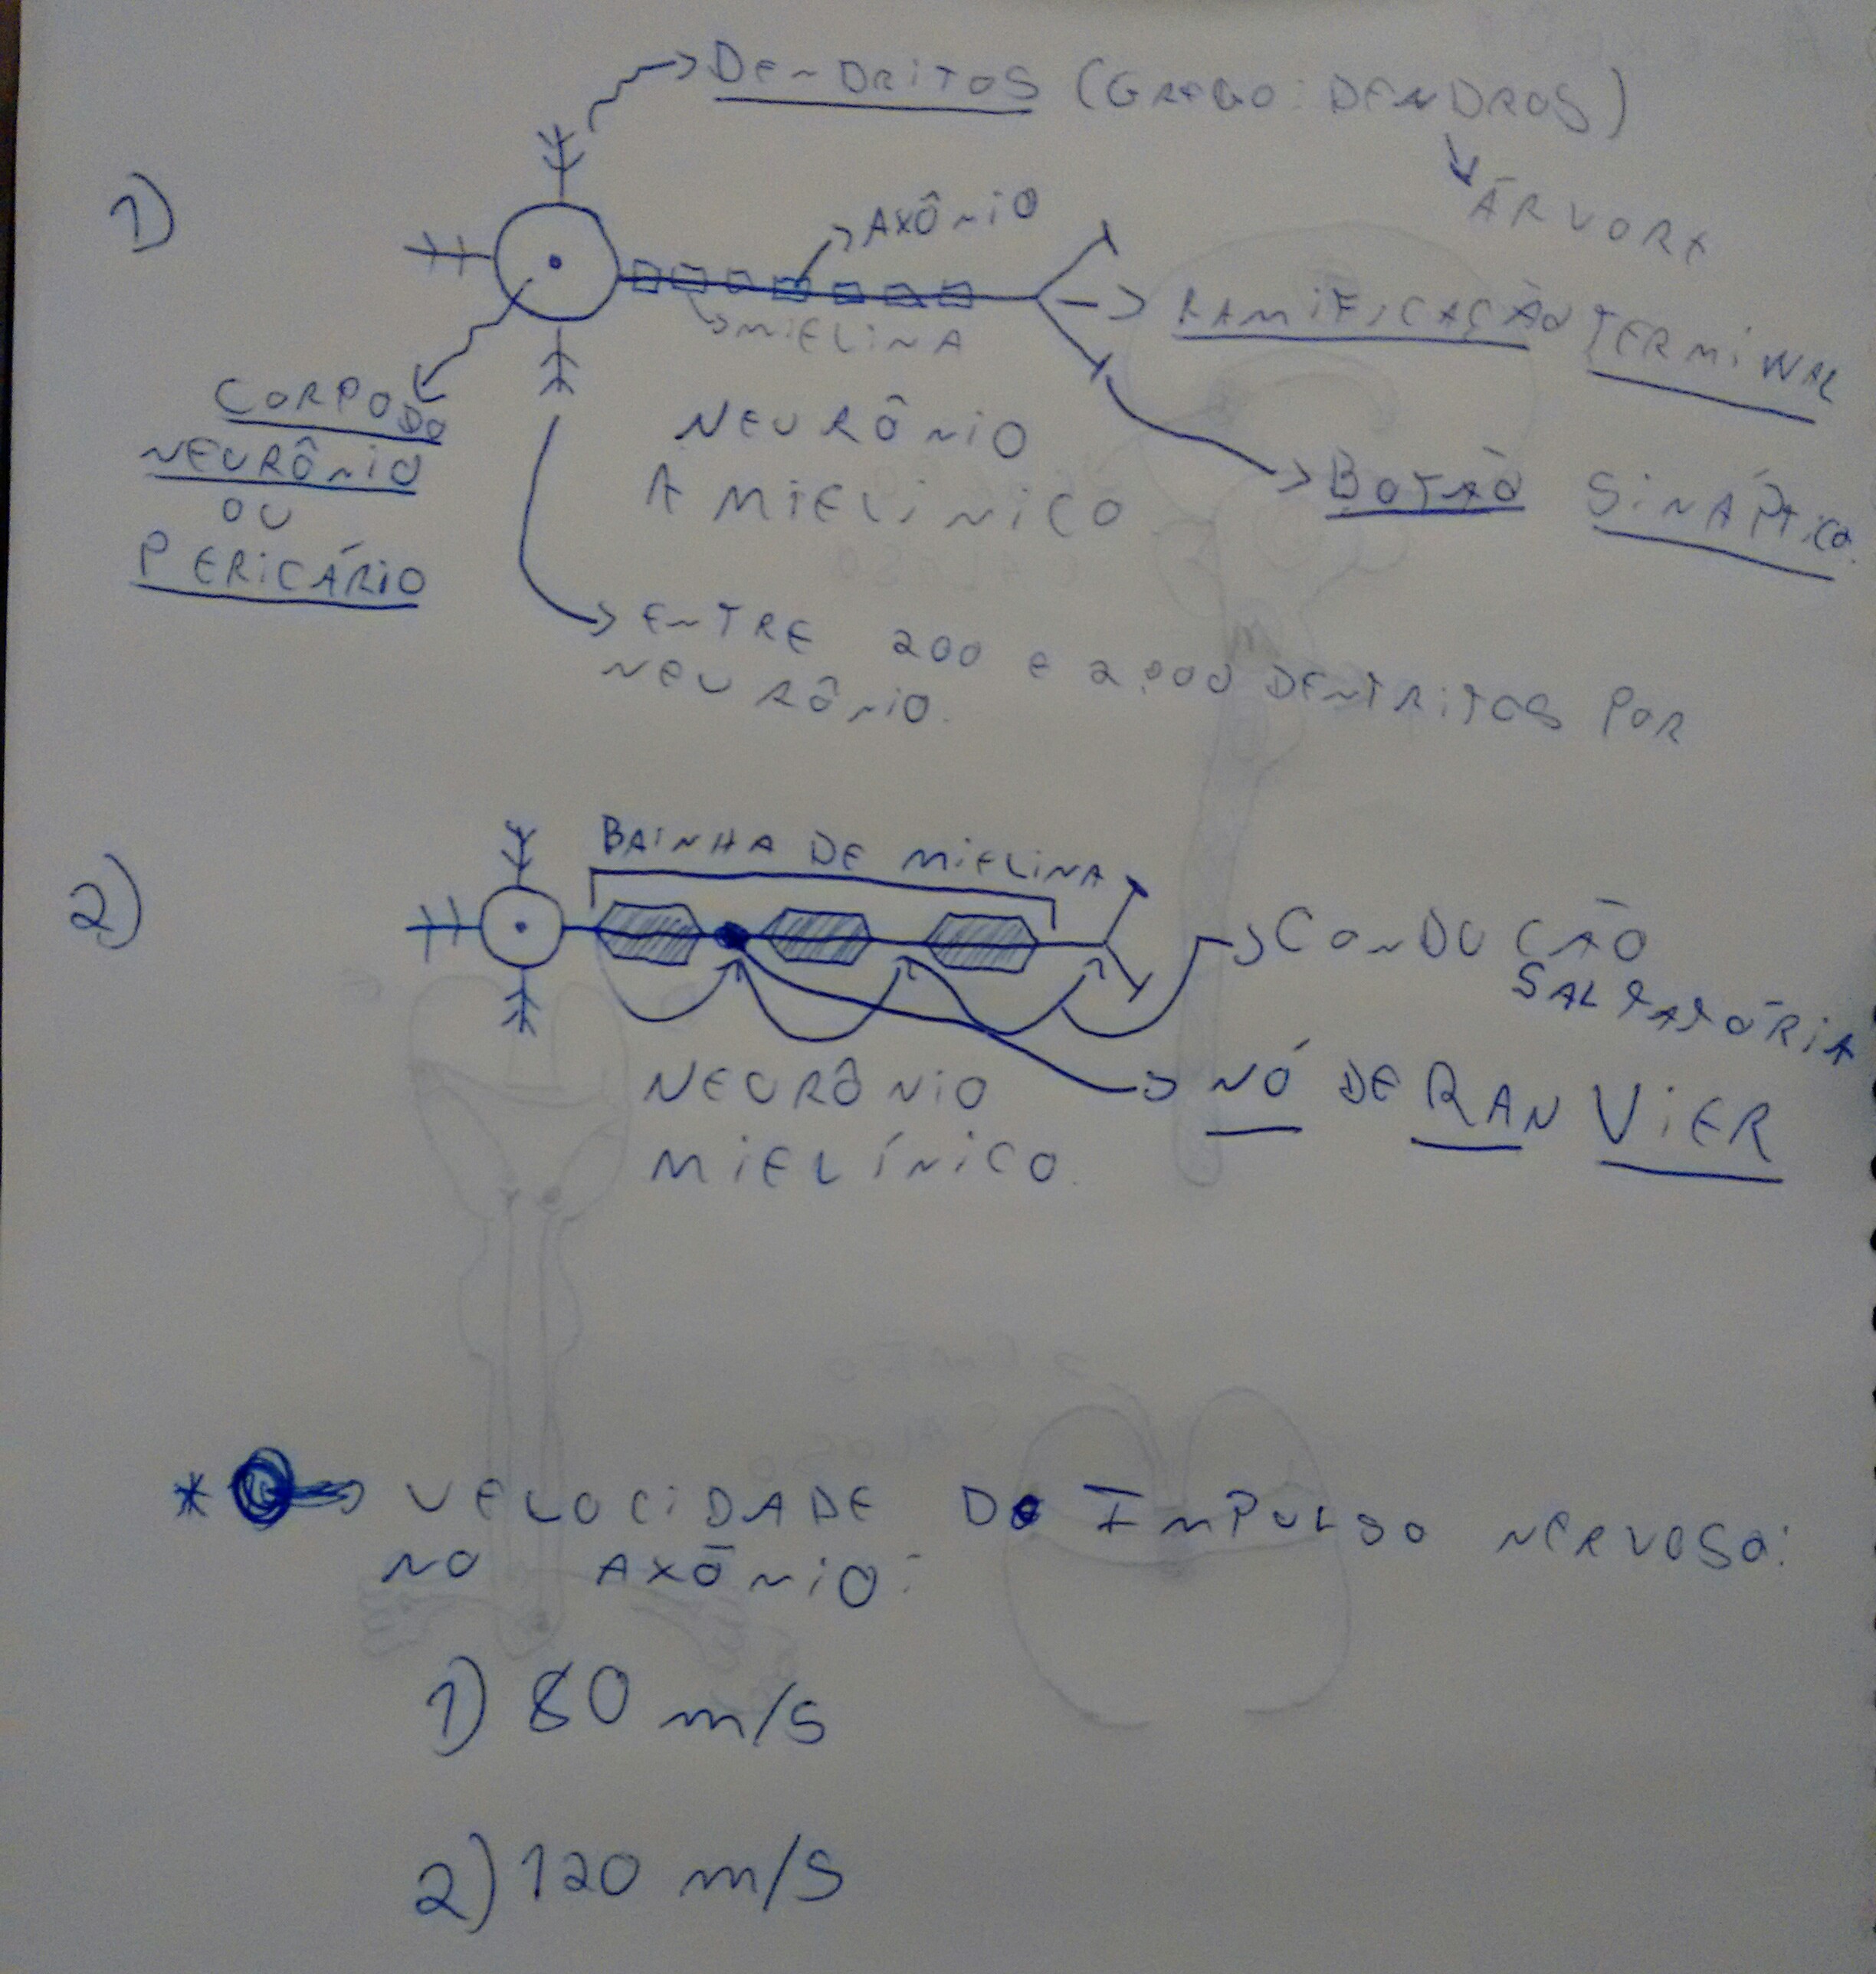 DENDRITOS (GREGO: DENDROS)
ÁRVORE
1)
AXÔNIO
MIELINA
RAMIFICAÇÃO TERMINAL
CORPO DO
NEURÔNIO
OU
PERICÁRIO
NEURÔNIO
AMIELÍNICO
BOTÃO SINÁPTICO.
ENTRE 200 e 2.000 DENTRITOS POR
NEURÔNIO.
2)
BAINHA DE MIELINA
CONDUCÃO
SALTATÓRIA
NÓ DE RANVIER
NEURÔNIO
MIELÍNICO.
* VELOCIDADE DO IMPULSO NERVOSO:
NO AXÔNIO:
1) 80 m/s
2) 120 m/s